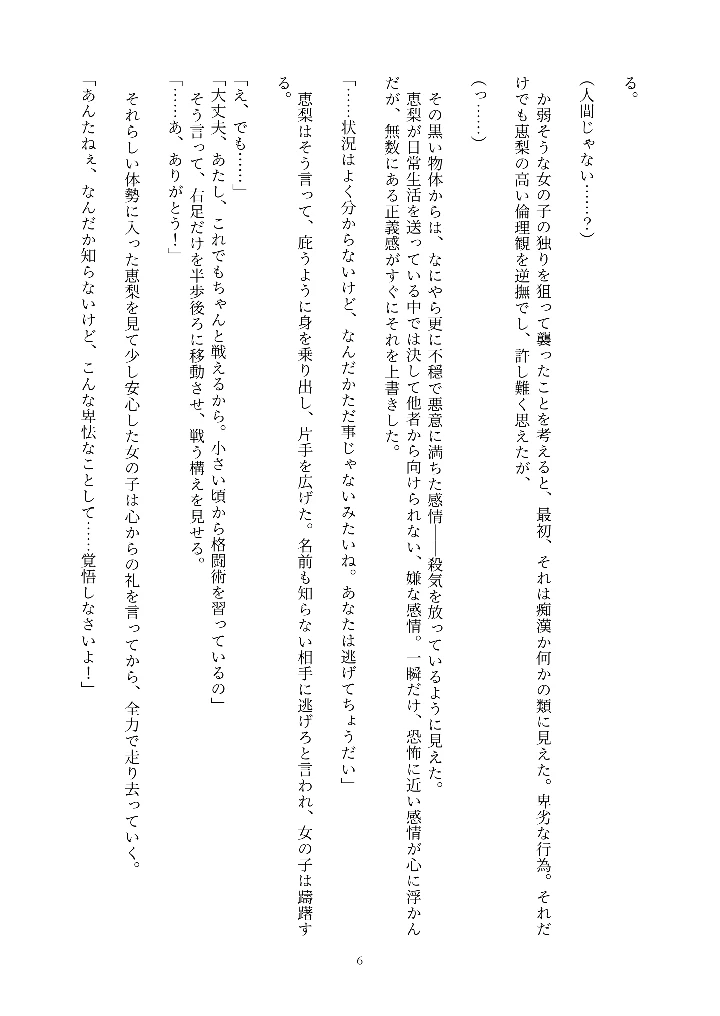 る。
(人間じゃない……?)
か弱そうな女の子の独りを狙って襲ったことを考えると、最初、それは痴漢か何かの類に見えた。卑劣な行為。それだ
けでも恵梨の高い倫理観を逆撫でし、許し難く思えたが、
(っ……)
その黒い物体からは、なにやら更に不穏で悪意に満ちた感情――殺気を放っているように見えた。
恵梨が日常生活を送っている中では決して他者から向けられない、嫌な感情。一瞬だけ、恐怖に近い感情が心に浮かん
だが、無数にある正義感がすぐにそれを上書きした。
「……状況はよく分からないけど、なんだかただ事じゃないみたいね。あなたは逃げてちょうだい」
恵梨はそう言って、庇うように身を乗り出し、片手を広げた。名前も知らない相手に逃げろと言われ、女の子は躊躇す
る。
「え、でも……」
「大丈夫、あたし、これでもちゃんと戦えるから。小さい頃から格闘術を習っているの」
そう言って、右足だけを半歩後ろに移動させ、戦う構えを見せる。
「……あ、ありがとう!」
それらしい体勢に入った恵梨を見て少し安心した女の子は心からの礼を言ってから、全力で走り去っていく。
「あんたねぇ、なんだか知らないけど、こんな卑怯なことして……覚悟しなさいよ!」
6